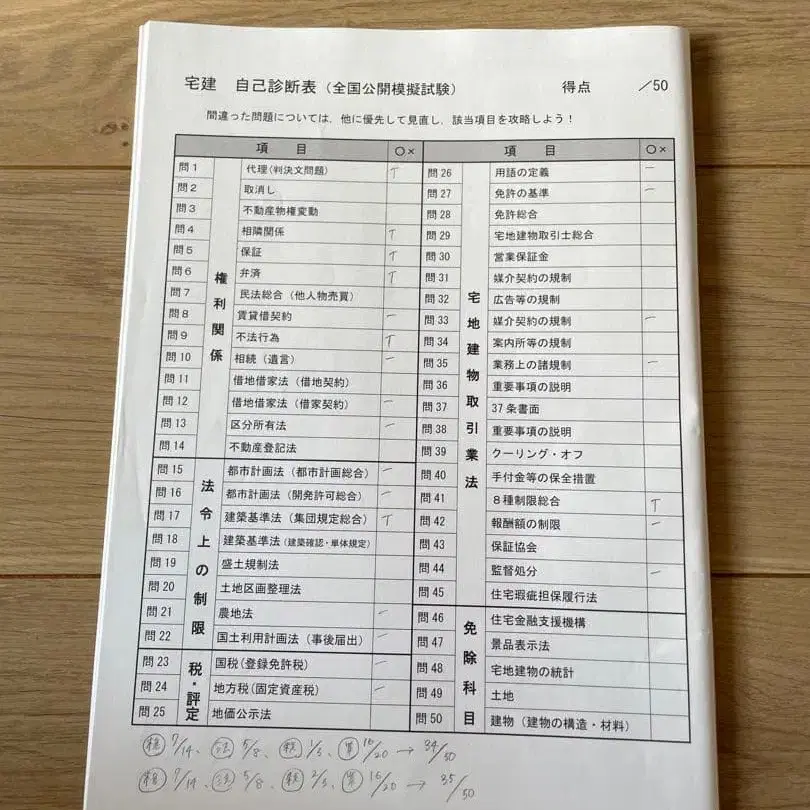 宅建 自己診断表（全国公開模擬試験） 得点 ／50
間違った問題については、他に優先して見直し、該当項目を攻略しよう！
項 目 ○×
権利関係
問1 代理(判決文問題) T
問2 取消し
問3 不動産物権変動
問4 相隣関係 T
問5 保証 T
問6 弁済 T
問7 民法総合（他人物売買）
問8 賃貸借契約 一
問9 不法行為 T
問10 相続（遺言） 一
問11 借地借家法（借地契約）
問12 借地借家法（借家契約） 一
問13 区分所有法 一
問14 不動産登記法
法令上の制限
問15 都市計画法（都市計画総合） 一
問16 都市計画法（開発許可総合） 一
問17 建築基準法（集団規定総合） T
問18 建築基準法（建築確認・単体規定）
問19 盛土規制法
問20 土地区画整理法
問21 農地法 一
問22 国土利用計画法（事後届出） 一
税・評定
問23 国税(登録免許税) 一
問24 地方税(固定資産税) 一
問25 地価公示法
項 目 ○×
宅地建物取引業法
問26 用語の定義 一
問27 免許の基準 一
問28 免許総合
問29 宅地建物取引士総合
問30 営業保証金
問31 媒介契約の規制
問32 広告等の規制
問33 媒介契約の規制 一
問34 案内所等の規制
問35 業務上の諸規制 一
問36 重要事項の説明
問37 37条書面
問38 重要事項の説明
問39 クーリング・オフ
問40 手付金等の保全措置
問41 8種制限総合 T
問42 報酬額の制限 一
問43 保証協会
問44 監督処分 一
問45 住宅瑕疵担保履行法
免除科目
問46 住宅金融支援機構
問47 景品表示法
問48 宅地建物の統計
問49 土地
問50 建物（建物の構造・材料）
7/14、法 5/8、税 1/3、16/20 → 34/50
7/14、法 5/8、税 2/3、16/20 → 35/50